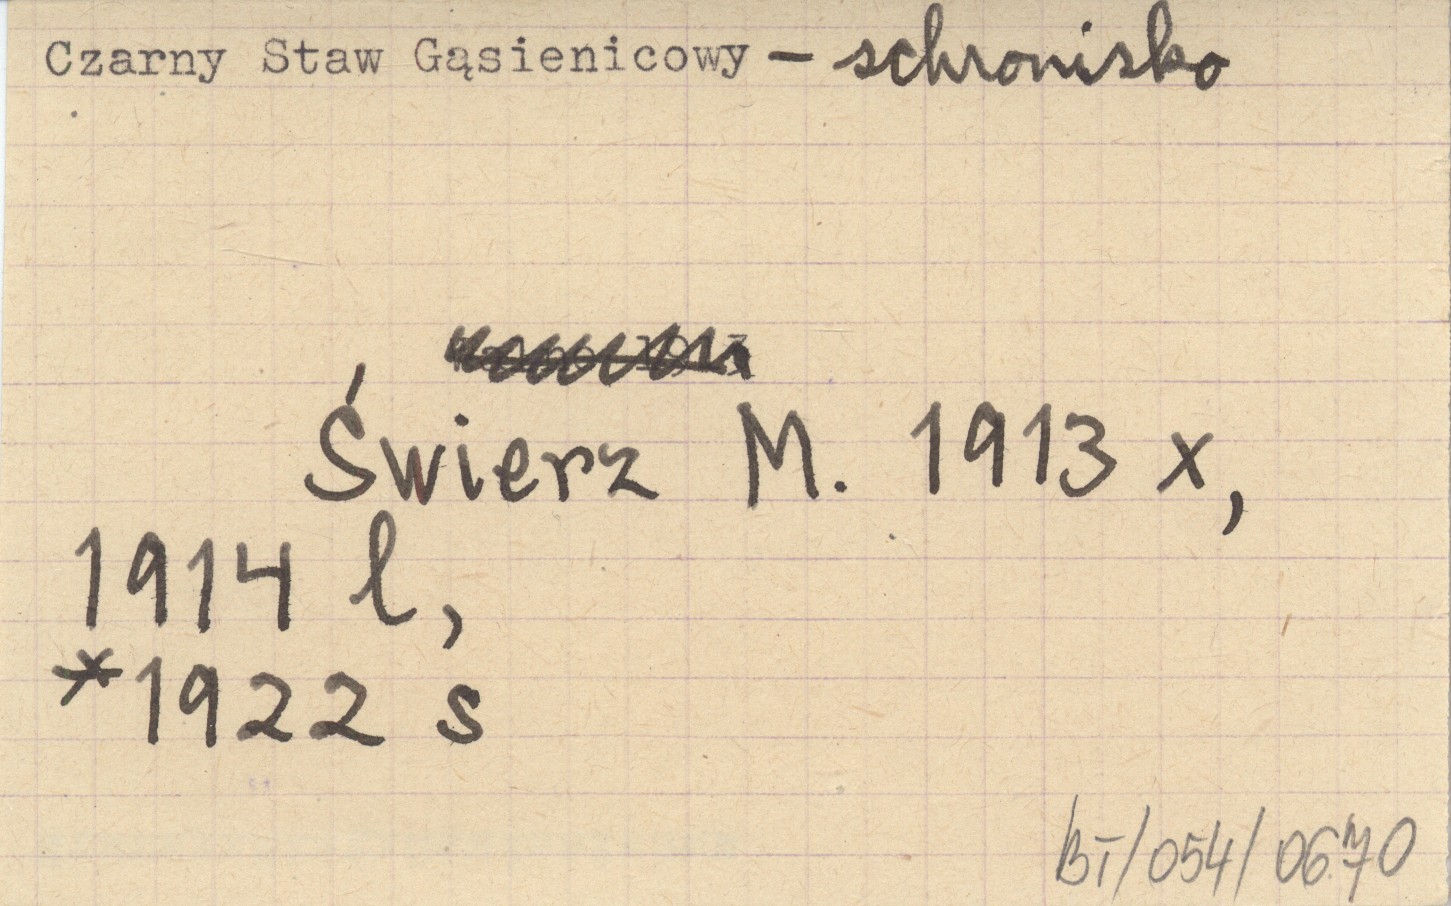 Czarny Staw Gąsienicowy - schronisko
Świerz M. 1913 x,
1914 l,
*1922 s
BT/054/0670